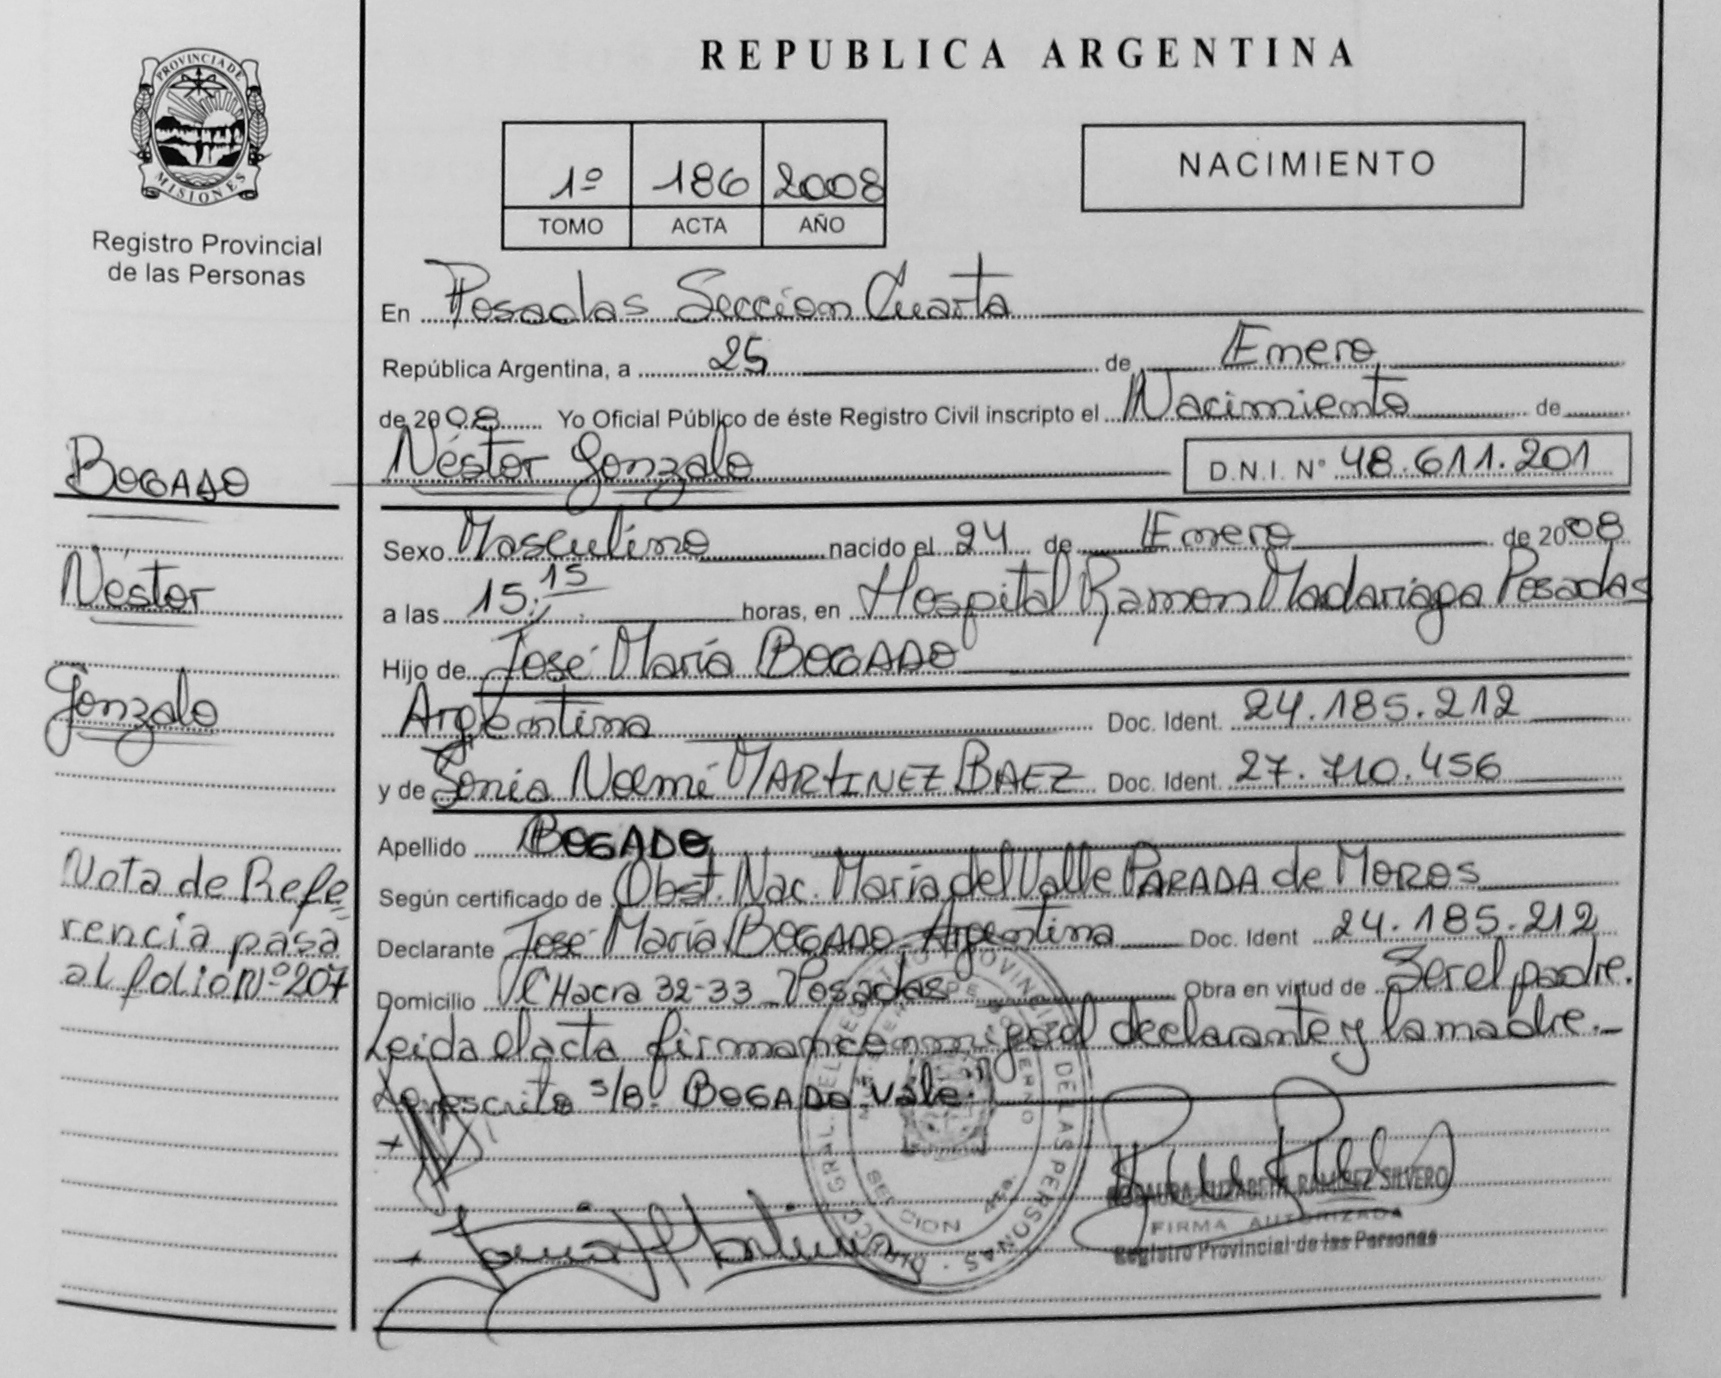 PROVINCIA DE
MISIONES
Registro Provincial
de las Personas
REPUBLICA ARGENTINA
1º 186 2008
TOMO ACTA AÑO
NACIMIENTO
En Posadas Sección Cuarta
República Argentina, a 25 de Enero
de 2008 Yo Oficial Público de éste Registro Civil inscripto el Nacimiento de
Néstor Gonzalo D.N.I. Nº 48.611.201
Sexo Masculino nacido el 24 de Enero de 2008
a las 15:15 horas, en Hospital Ramon Madariaga Posadas
Hijo de José María BOGADO
Argentina Doc. Ident. 24.185.212
y de Sonia Noemí MARTINEZ BAEZ Doc. Ident. 27.710.456
Apellido BOGADO
Según certificado de Obst. Nac. María del Valle PARADA de MOROS
Declarante José María BOGADO - Argentina Doc. Ident 24.185.212
Domicilio CHacra 32-33 - Posadas Obra en virtud de Ser el padre.
Leida el acta firman conmigo el declarante y la madre.-
s/B. BOGADO Vale.
BOGADO
Néstor
Gonzalo
Nota de Refe
rencia pasa
al folio Nº 207
ROSAURA ELIZABETH RAMIREZ SILVERO
FIRMA AUTORIZADA
Registro Provincial de las Personas